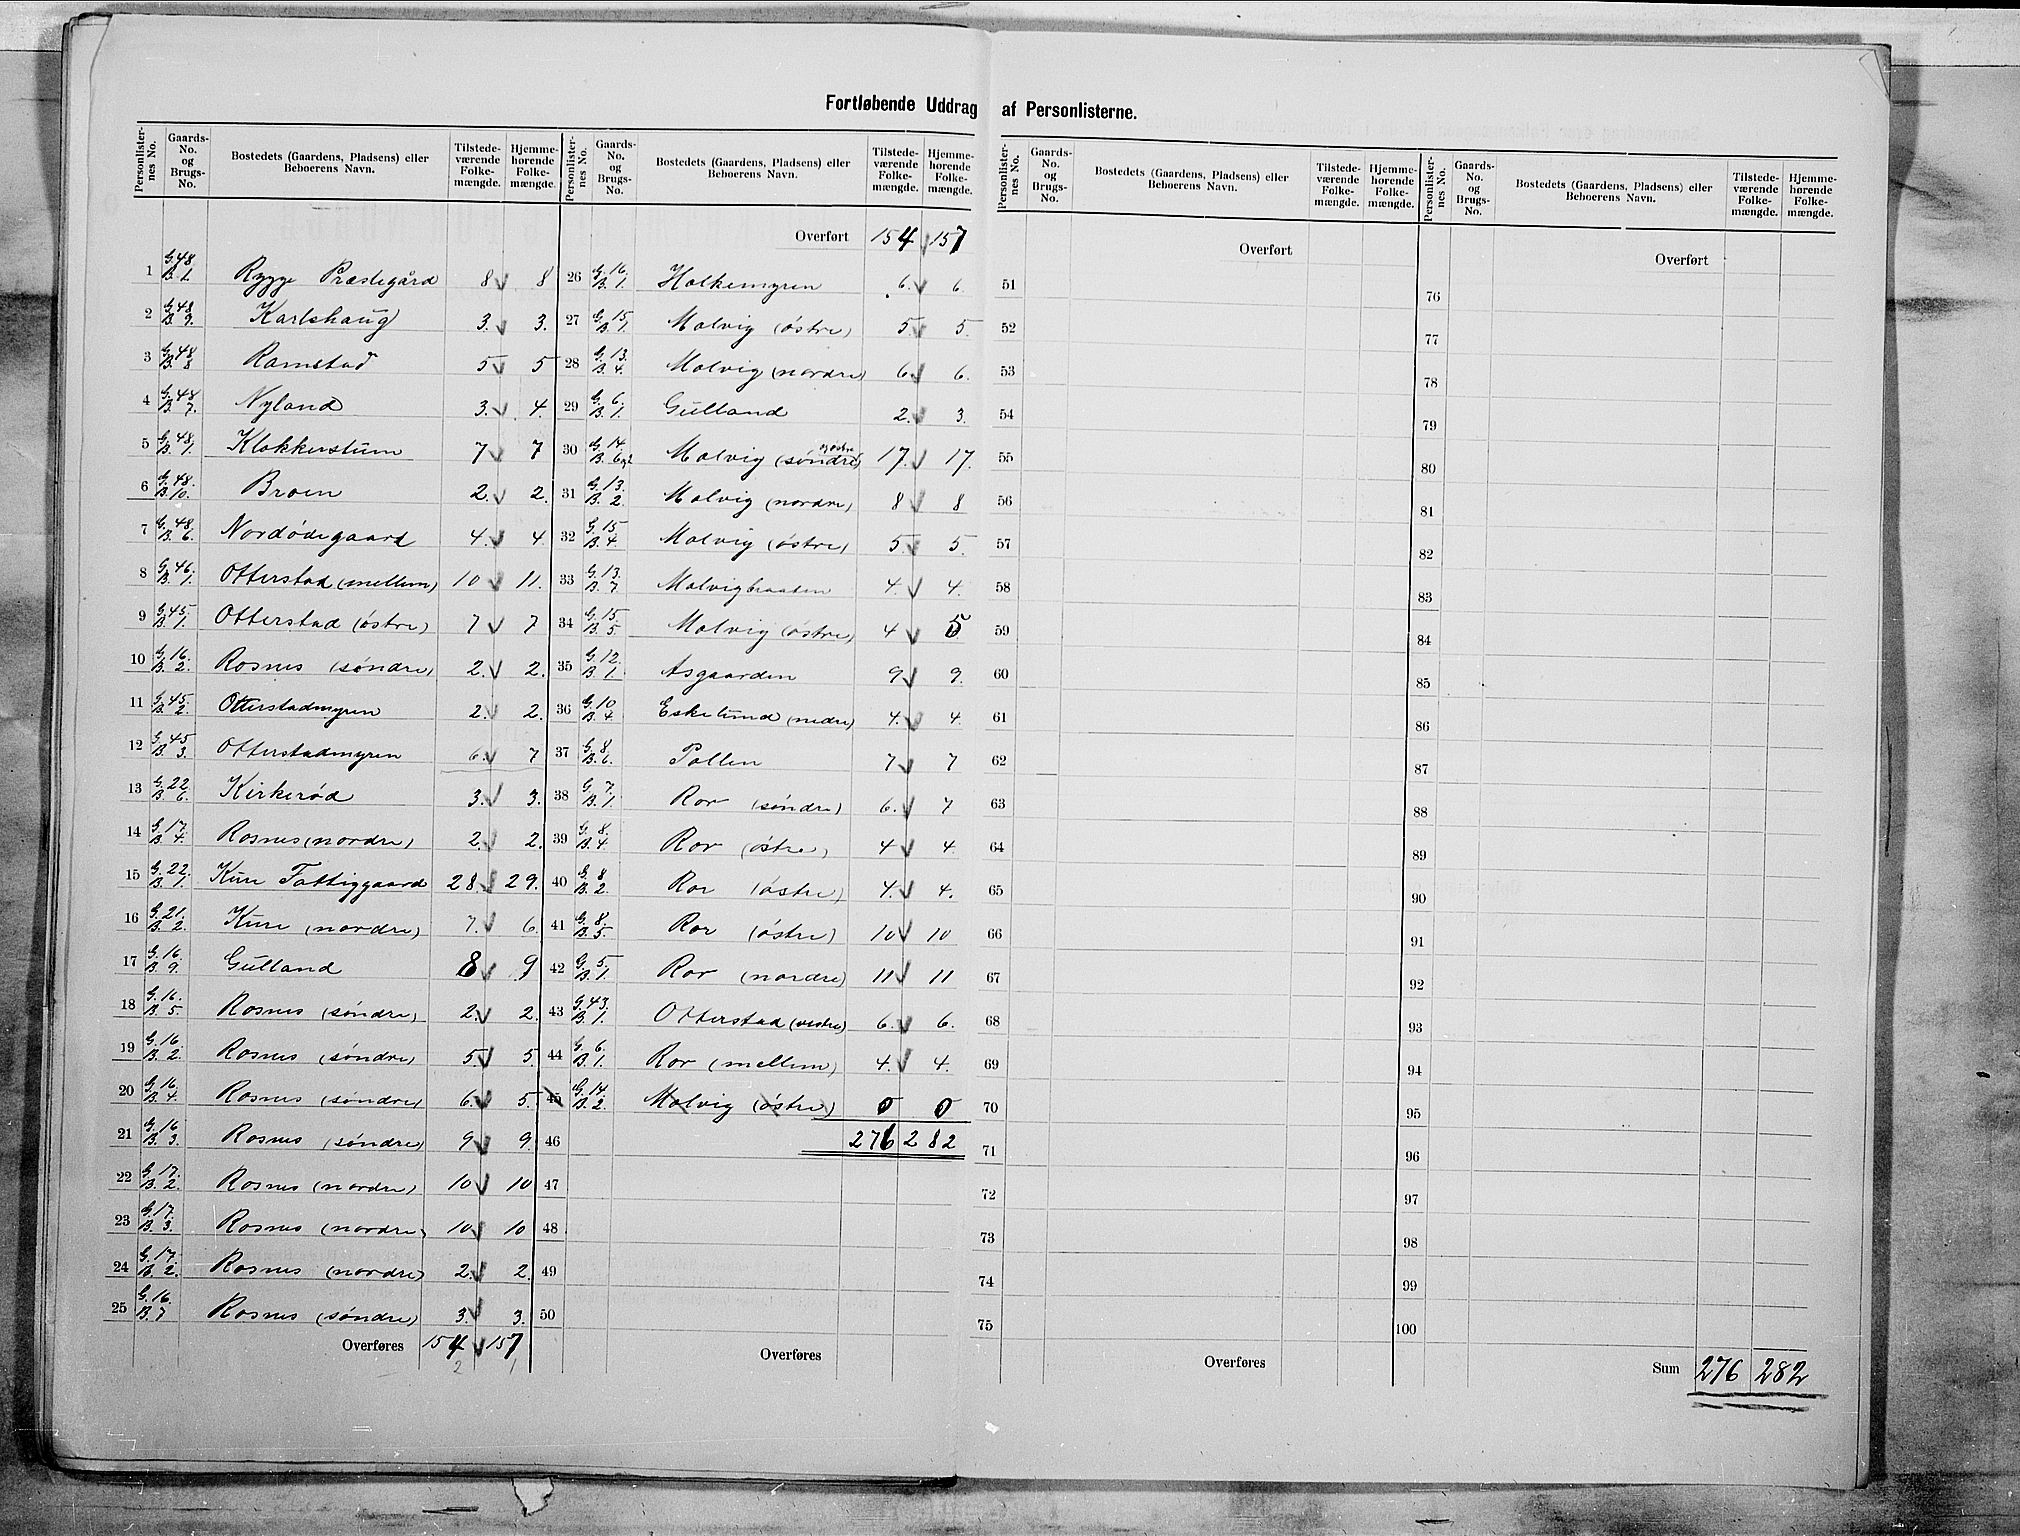 Fortløbende Uddrag af Personlisterne.
Personlisternes No. Gaards-No. og Brugs-No. Bostedets (Gaardens, Pladsens) eller Beboerens Navn. Tilstedeværende Folkemængde. Hjemmehørende Folkemængde.
1 G. 48. B. 1. Rygge Præstegård 8 8
2 G. 48 B. 9. Karlshaug 3. 3.
3 G. 48 B. 8 Ramstad 5 5
4 G. 48 B. 7. Nyland 3. 4.
5 G. 48. B. 1. Klokkerstuen 7 7
6 G. 48. B. 10. Broen 2. 2.
7 G. 48. B. 6. Nordødegaard 4. 4.
8 G. 46. B. 1. Otterstad (mellem) 10 11.
9 G. 45. B. 1. Otterstad (østre) 7 7
10 G. 16. B. 2. Rosnes (søndre) 2. 2.
11 G. 45. B. 2. Otterstadmyren 2. 2.
12 G. 45 B. 3. Otterstadmyren 6. 7
13 G. 22 B. 6. Kirkerød 3. 3.
14 G. 17. B. 4. Rosnes (nordre) 2. 2.
15 G. 22. B. 1. Kure Fattiggaard 28. 29.
16 G. 21. B. 2. Kure (nordre) 7. 6.
17 G. 16. B. 9. Gulland 8 9
18 G. 16. B. 5. Rosnes (søndre) 2. 2.
19 G. 16. B. 2. Rosnes (søndre) 5. 5
20 G. 16. B. 4. Rosnes (søndre) 6. 5.
21 G. 16 B. 3. Rosnes (søndre) 9 9.
22 G. 17. B. 2. Rosnes (nordre) 10 10
23 G. 17. B. 3. Rosnes (nordre) 10 10
24 G. 17. B. 2. Rosnes (nordre) 2. 2.
25 G. 16. B. 7 Rosnes (søndre) 3. 3.
Overføres 154 157
2 1
Personlisternes No. Gaards-No. og Brugs-No. Bostedets (Gaardens, Pladsens) eller Beboerens Navn. Tilstedeværende Folkemængde. Hjemmehørende Folkemængde.
Overført 154 157
26 G. 16. B. 1. Holkemyren 6. 6.
27 G. 15. B. 1. Molvig (østre) 5 5.
28 G. 13. B. 4. Molvig (nordre) 6. 6.
29 G. 6. B. 1. Gulland 2. 3.
30 G. 14. B. 6 og 2 Molvig (søndre og østre) 17. 17.
31 G. 13. B. 2 Molvig (nordre) 8 8
32 G. 15 B. 4. Molvig (østre) 5 5.
33 G. 13. B. 7 Molvigbraaten 4. 4.
34 G. 15. B. 5. Molvig (østre) 4 5
35 G. 12. B. 1. Asgaarden 9 9.
36 G. 10 B. 4. Eskelund (nedre) 4. 4.
37 G. 8. B. 6. Pollen 7 7
38 G. 7. B. 1. Ror (søndre) 6. 7
39 G. 8. B. 4. Ror (østre) 4 4.
40 G. 8 B. 2. Ror (østre) 4. 4.
41 G. 8. B. 5. Ror (østre) 10 10
42 G. 5 B. 1. Ror (nordre) 11 11
43 G. 43. B. 1. Otterstad (vestre) 6. 6.
44 G. 6. B. 1. Ror (mellem) 4. 4.
45 G. 14. B. 2. Molvig (østre) 0 0
46 276 282
47
48
49
50
Overføres
Personlisternes No. Gaards-No. og Brugs-No. Bostedets (Gaardens, Pladsens) eller Beboerens Navn. Tilstedeværende Folkemængde. Hjemmehørende Folkemængde.
Overført
51
52
53
54
55
56
57
58
59
60
61
62
63
64
65
66
67
68
69
70
71
72
73
74
75
Overføres
Personlisternes No. Gaards-No. og Brugs-No. Bostedets (Gaardens, Pladsens) eller Beboerens Navn. Tilstedeværende Folkemængde. Hjemmehørende Folkemængde.
Overført
76
77
78
79
80
81
82
83
84
85
86
87
88
89
90
91
92
93
94
95
96
97
98
99
100
Sum 276 282